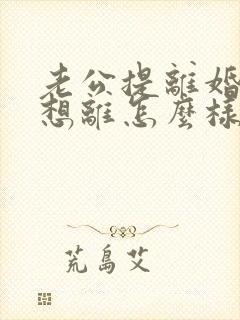 老公提離婚
想離怎麼樣
荒島艾